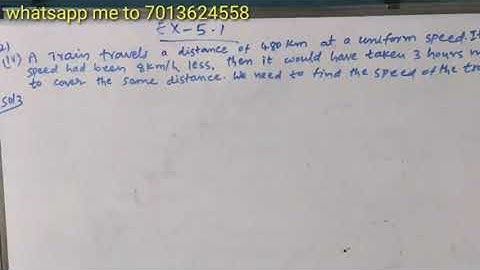 whatsapp me to 7013624558
Ex-5.1
2)
(iv) A Train travels a distance of 480 km at a uniform speed. If
speed had been 8km/h less, then it would have taken 3 hours
to cover the same distance. We need to find the speed of the
sol3